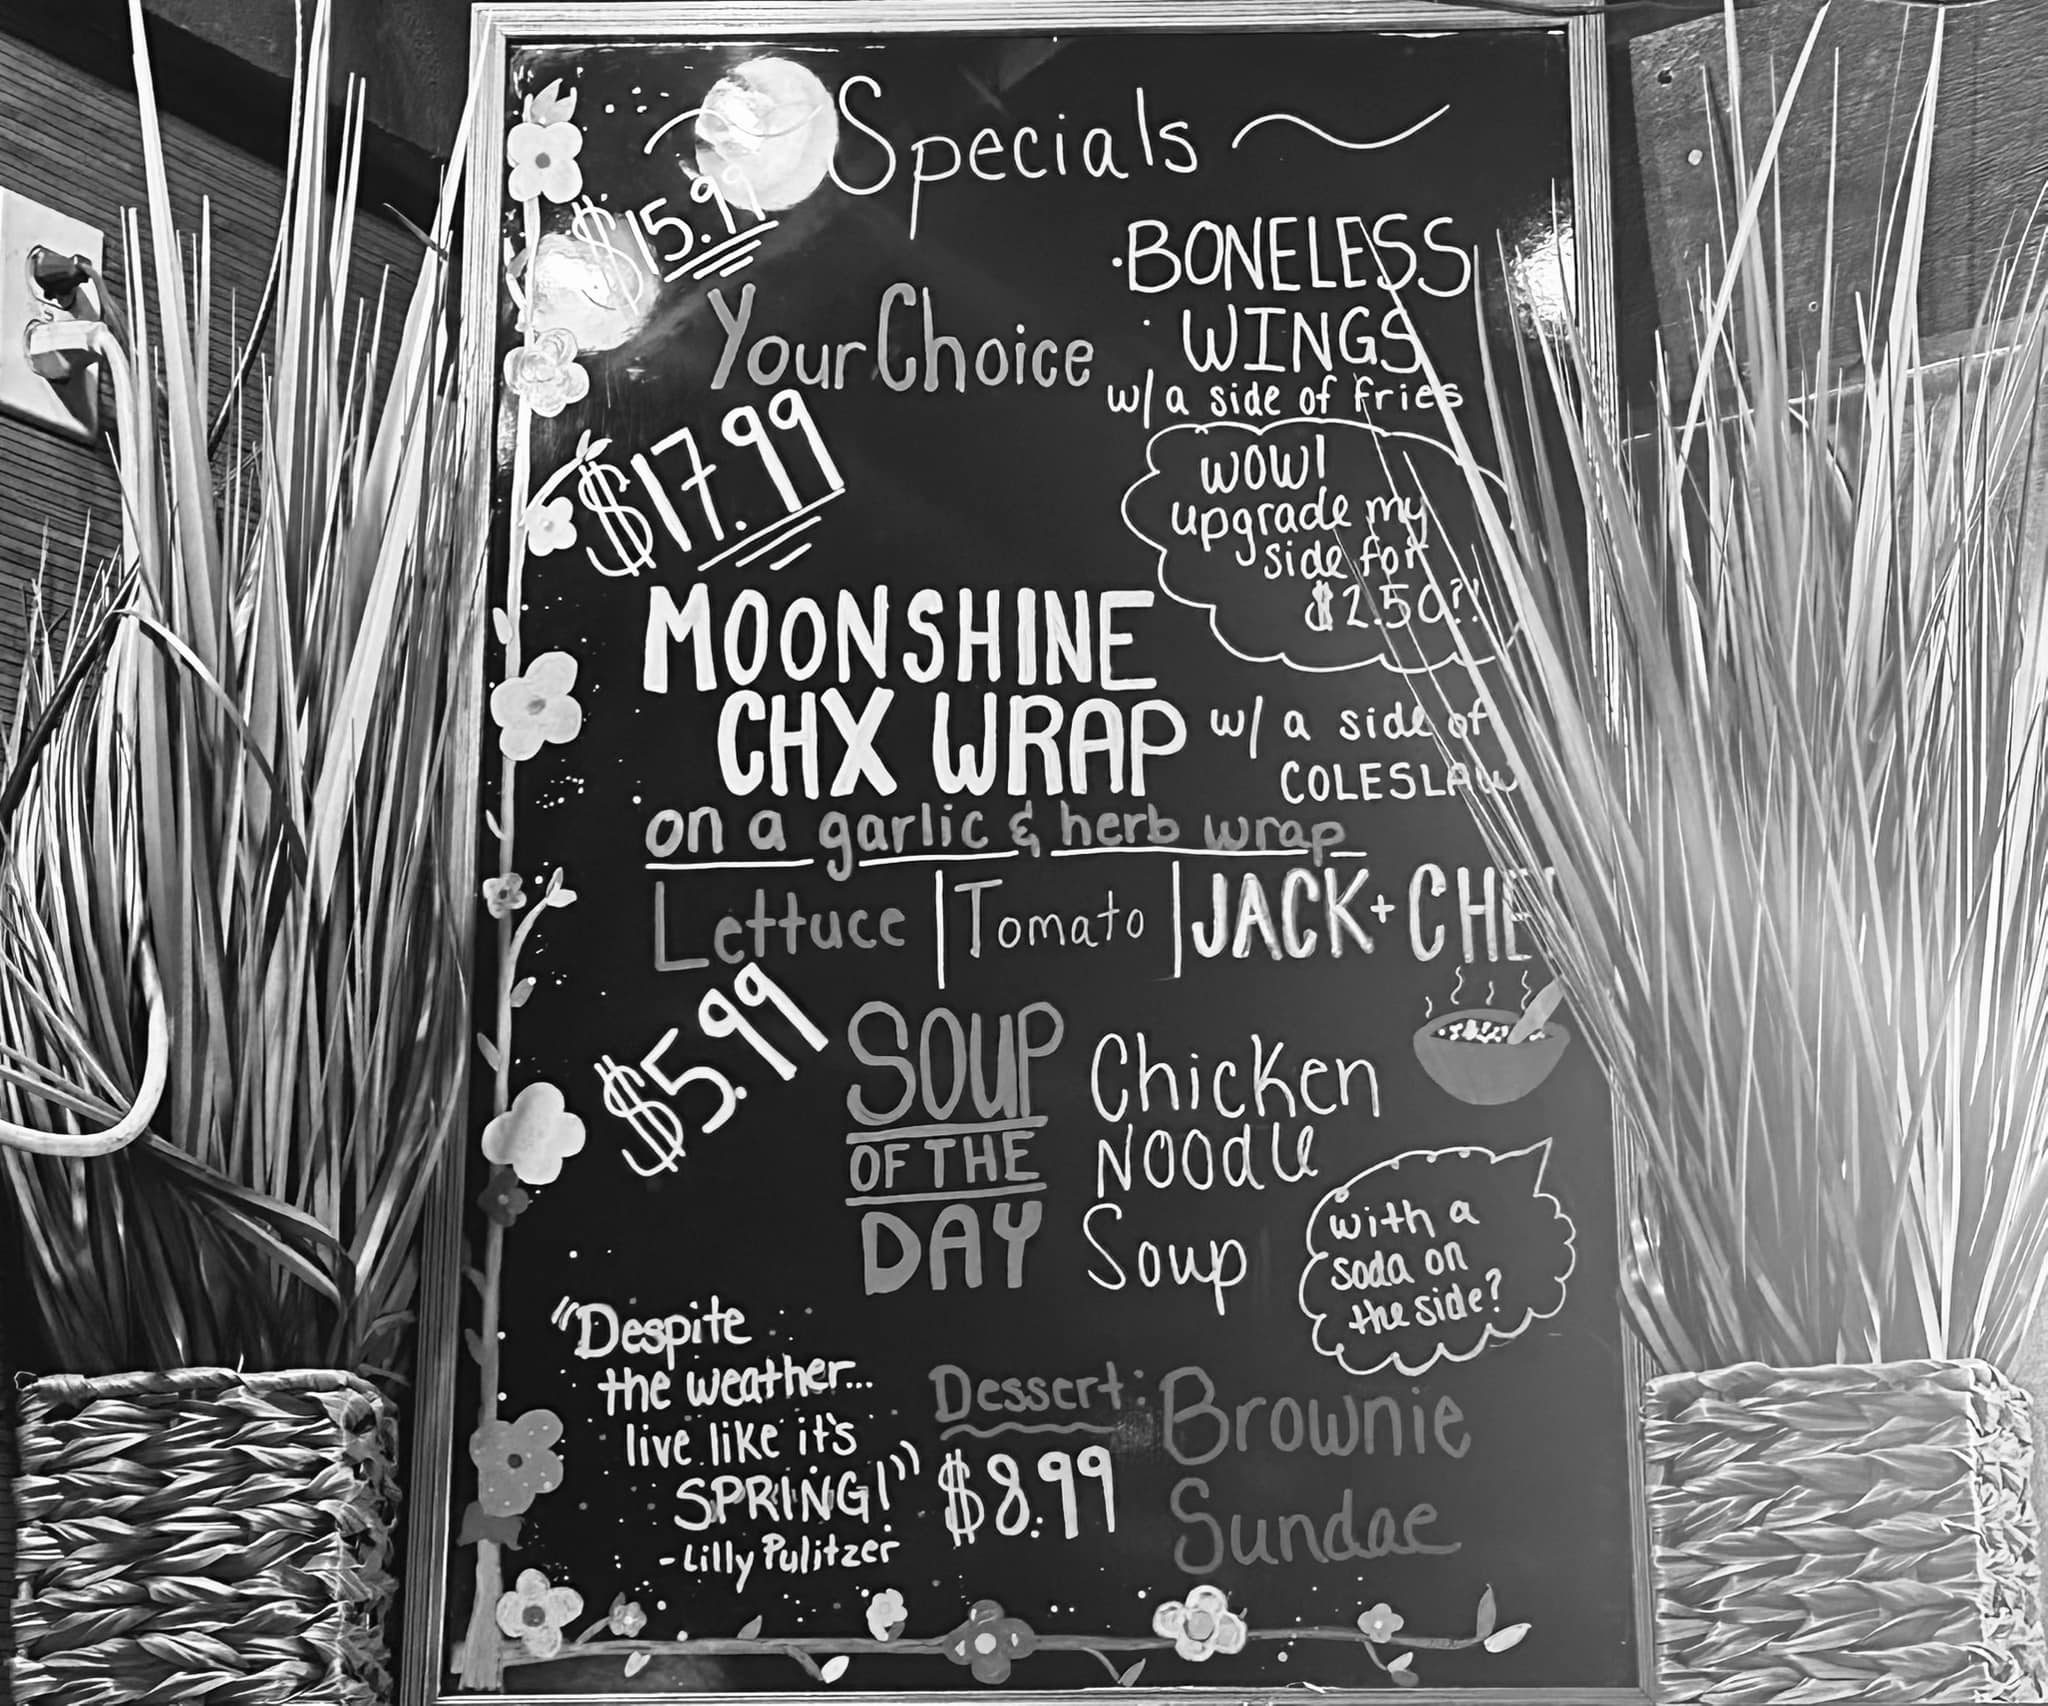 Specials
$15.99
Your Choice
·BONELESS
WINGS
w/ a side of fries
WOW!
upgrade my
side for
$2.50?!
$17.99
MOONSHINE
CHX WRAP
w/ a side of
COLESLAW
on a garlic & herb wrap
Lettuce | Tomato | JACK + CHE
$5.99
SOUP
OF THE
DAY
Chicken
Noodle
Soup
with a
soda on
the side?
"Despite
the weather...
live like it's
SPRING!"
- Lilly Pulitzer
Dessert:
$8.99
Brownie
Sundae